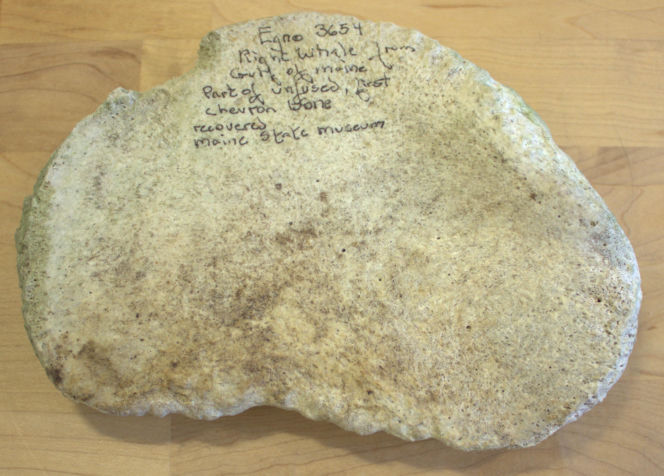 Egno 3654
Right Whale from
Gulf of Maine
Part of unfused, first
chevron bone
recovered
Maine State Museum